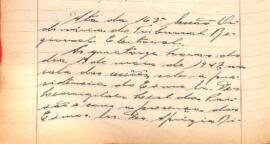 Ata da 163ª Sessão Or
dinária do Tribunal Re
gional Eleitoral.
As quatorze horas do
dia 9 de maio de 1947, na
sala das sessões, sob a pre
sidencia do Exmo. Sr. Des
embargador
e com a presença dos
Exmos. Srs. Des.